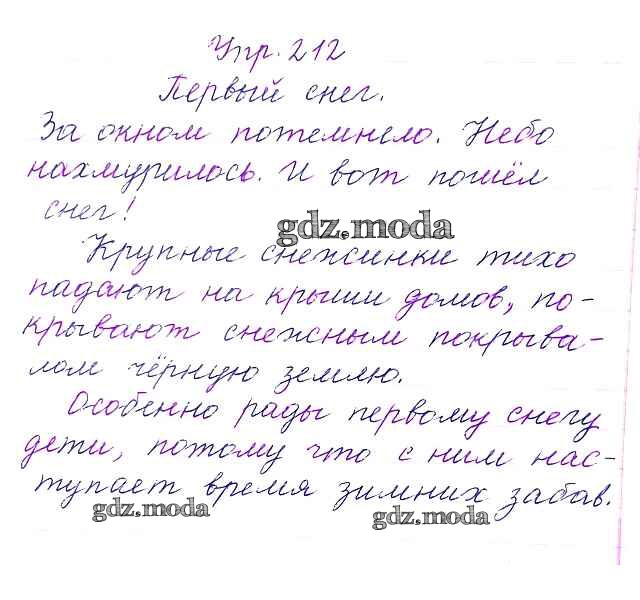 Упр. 212
Первый снег.
За окном потемнело. Небо
нахмурилось. И вот пошёл
снег!
gdz.moda
Крупные снежинки тихо
падают на крыши домов, по-
крывают снежным покрыва-
лом чёрную землю.
Особенно рады первому снегу
дети, потому что с ним нас-
тупает время зимних забав.
gdz.moda
gdz.moda